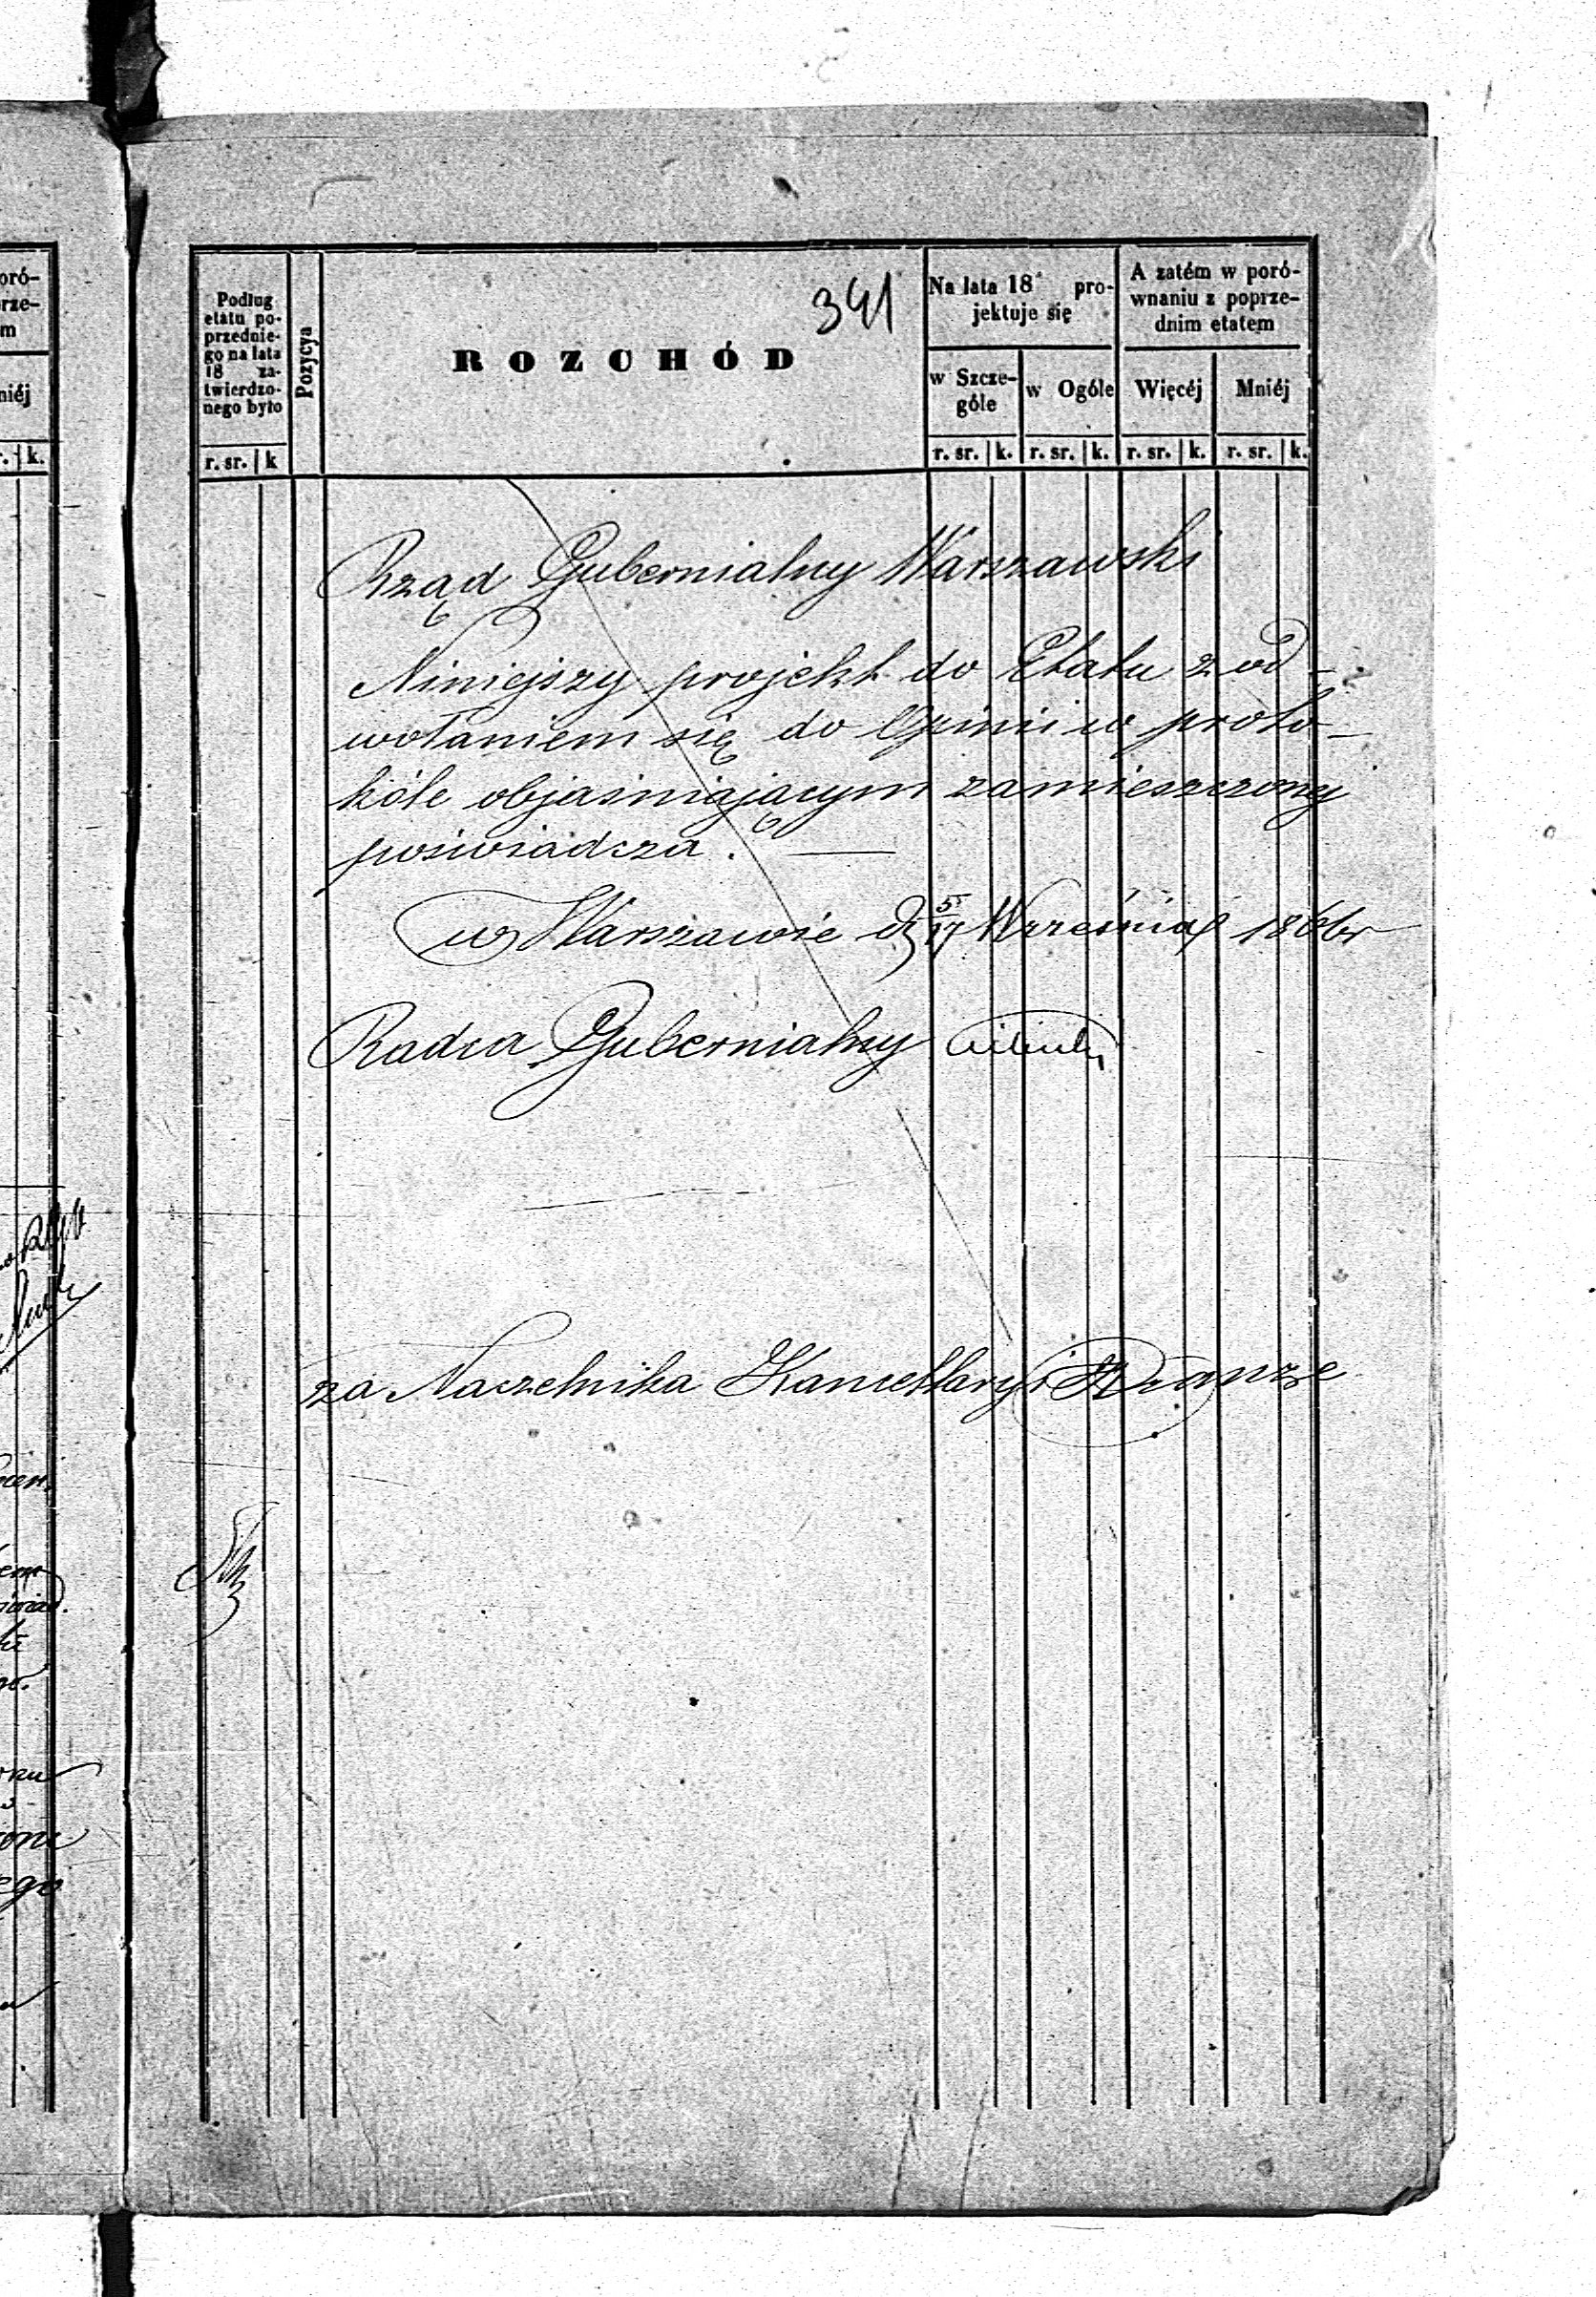 341
Podług
etatu po-
przednie-
go na lata
18 za-
twierdzo-
nego było
Pozycya
ROZCHÓD
Na lata 18 pro-
jektuje się
A zatém w poró-
wnaniu z poprze-
dnim etatem
w Szcze-
góle
w Ogóle
Więcéj
Mniéj
r. sr. k
r. sr. k. r. sr. k. r. sr. k. r. sr. k.
Rząd Gubernialny Warszawski
Niniejszy projekt do Etatu z od-
wołaniem się do Opinii w proto-
kóle objaśniającym zamieszczonej
poświadcza.
w Warszawie d 5/17 Września 186
Radca Gubernialny
za Naczelnika Kancellaryi
oró-
rze-
m
niéj
r. k.